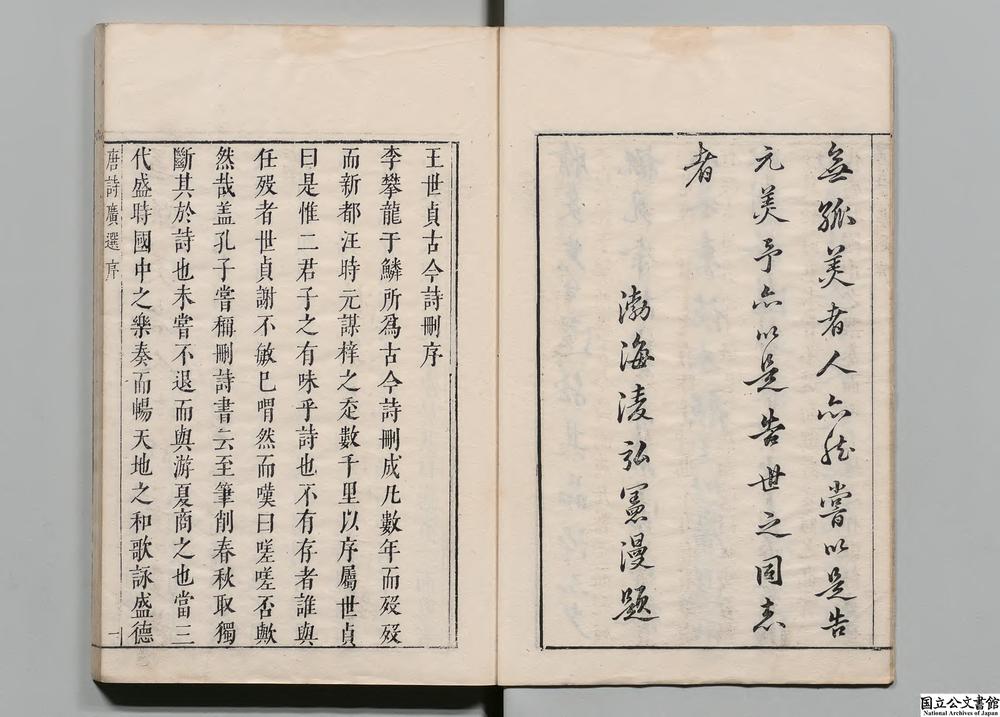 無孤美者人亦能嘗以是告
元美予亦以是告世之同志
者
渤海凌弘憲漫題
王世貞古今詩刪序
李攀龍于鱗所爲古今詩刪成凡數年而歿歿
而新都汪時元謀梓之走數千里以序屬世貞
曰是惟二君子之有味乎詩也不有存者誰與
任歿者世貞謝不敏已喟然而嘆曰嗟嗟否歟
然哉盖孔子嘗稱刪詩書云至筆削春秋取獨
斷其於詩也未嘗不退而與游夏商之也當三
代盛時國中之樂奏而暢天地之和歌詠盛德
唐詩廣選 序 一
国立公文書館
National Archives of Japan